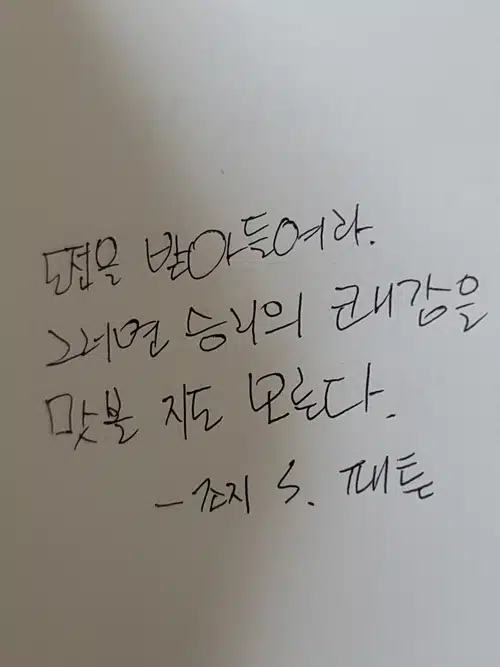 도전을 받아들여라.
그러면 승리의 쾌감을
맛볼 지도 모른다.
- 조지 S. 패튼